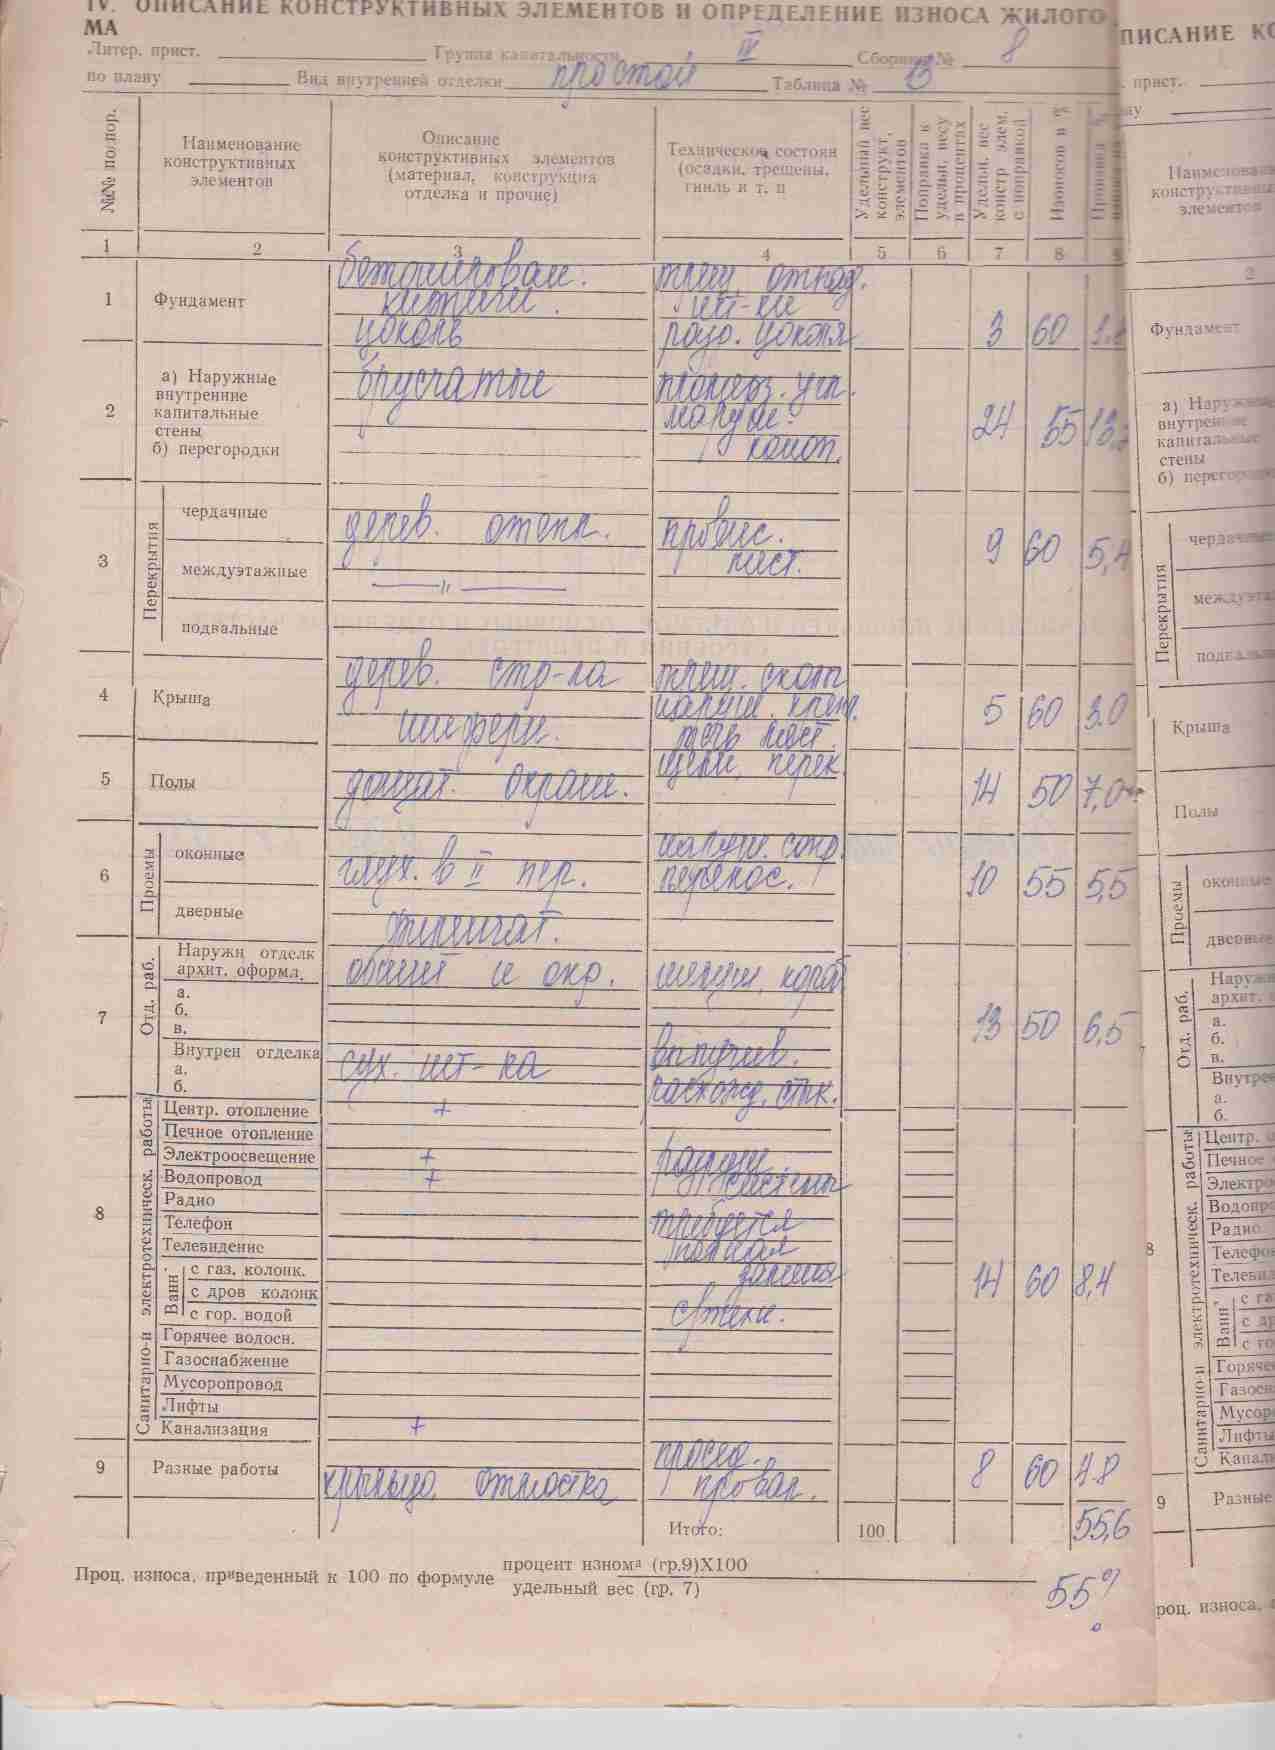 IV. ОПИСАНИЕ КОНСТРУКТИВНЫХ ЭЛЕМЕНТОВ И ОПРЕДЕЛЕНИЕ ИЗНОСА ЖИЛОГО
МА
Литер. прист. Группа капитальности IV Сборник № 8
по плану Вид внутренней отделки простой Таблица № 13
№№ по пор.
Наименование конструктивных элементов
Описание конструктивных элементов (материал, конструкция отделка и прочие)
Техническое состоян (осадки, трещены, гниль и т. п
Удельный вес конструкт, элементов
Поправка к удельн. весу в процентах
Удельн. вес констр элем, с поправкой
Износов в %
1 2 3 4 5 6 7 8
1 Фундамент бетонирован. трещ. отпад.
шт-ки
цоколь разр. цоколя 3 60
2 а) Наружные брусчатые промерз. угл.
внутренние
капитальные наруш. 24 55 13,
стены
б) перегородки коноп.
3 Перекрытия
чердачные дерев. отепл. провис. 9 60 5,4
междуэтажные —"— мест.
подвальные
4 Крыша дерев. стр-ла трещ.
шиферн. наруш. 5 60 3.0
течь мест.
5 Полы дощат. окраш. щели, 14 50 7,0
6 Проемы
оконные глух. в II пер. наруш. перекос. 10 55 5,5
дверные филенчат.
7 Отд. раб.
Наружн отделк
архит. оформл. обшит и окр. 13 50 6,5
а.
б.
в.
Внутрен отделка сух. шт-ка выпучив.
а.
б. расхожд. стык.
8 Санитарно-и электротехническ. работы
Центр. отопление +
Печное отопление
Электроосвещение +
Водопровод + системы
Радио
Телефон требуется
Телевидение полная
Ванн.
с газ. колонк. замена 14 60 8,4
с дров колонк
с гор. водой с/техн.
Горячее водосн.
Газоснабжение
Мусоропровод
Лифты
Канализация +
9 Разные работы крыльцо, отмостка просед. провал. 8 60 4.8
Итого: 100 55,6
Проц. износа, приведенный к 100 по формуле процент износа (гр.9)X100
удельный вес (гр. 7)
55%
ПИСАНИЕ КО
. прист.
ну
Наименован
конструктивны
элементов
2
Фундамент
а) Наружные
внутренние
капитальные
стены
б) перегородк
Перекрытия
чердачны
междуэта
подвальн
Крыша
Полы
Проемы
оконные
дверные
Отд. раб.
Наружн
архит.
а.
б.
в.
Внутрен
а.
б.
8 Санитарно-и электротехническ. работы
Центр. о
Печное о
Электро
Водопро
Радио
Телефо
Телевид
Ванн.
с га
с др
с го
Горяче
Газосн
Мусоро
Лифты
Канали
9 Разные
роц. износа,